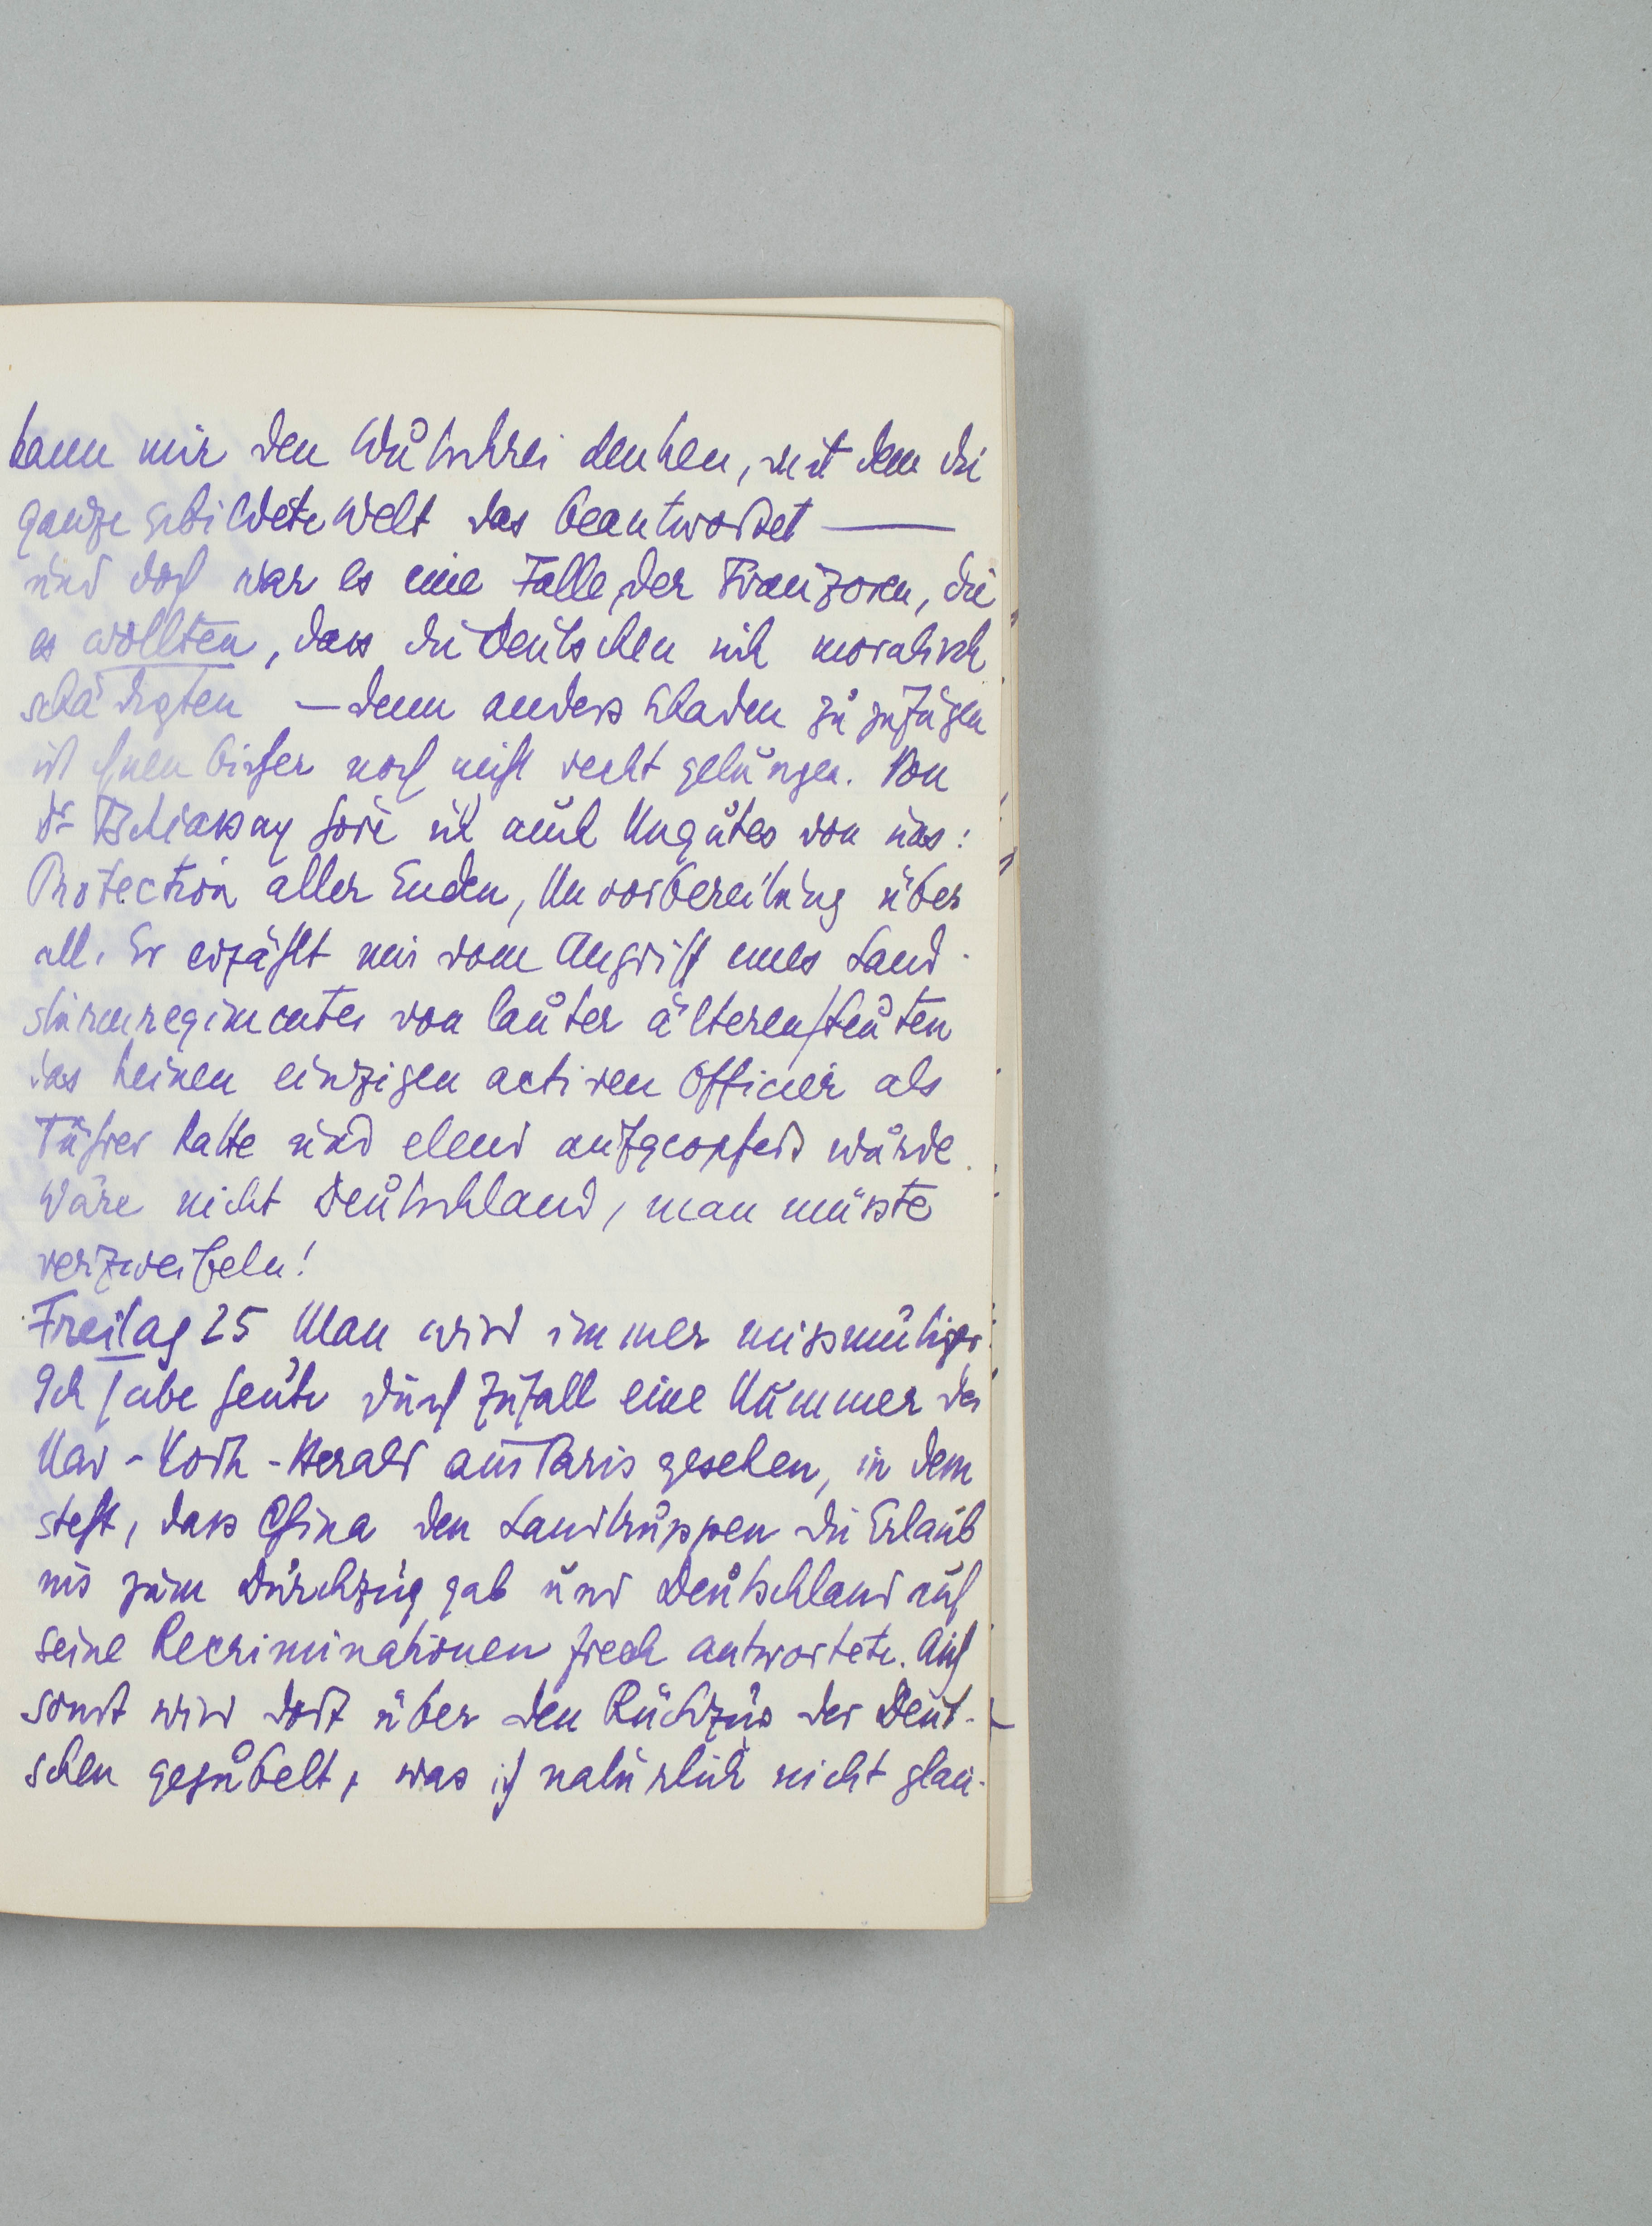 kann mir den Wutschrei denken, mit dem die
ganze gebildete Welt das beantwortet —
und doch war es eine Falle, der Franzosen, die
es wollten, dass die Deutschen sich moralisch
schädigten — denn anders Schaden zu zufügen
ist ihnen bisher noch nicht recht gelungen. Von
Dr hör ich auch Ungutes von uns:
Protection aller Enden, Unvorbereitung über
all. Er erzählt mir vom Angriff eines Land-
sturmregimentes von lauter älteren Leuten
das keinen einzigen activen Officier als
Führer hatte und elend aufgeopfert wurde.
Wäre nicht Deutschland, man müsste
verzweifeln!
Freitag 25 Man wird immer missmutiger.
Ich habe heute durch Zufall eine Nummer des
-York-Herald aus Paris gesehen, in dem
steht, dass China den Landtruppen die Erlaub
nis zum Durchzug gab und Deutschland auf
seine Recriminationen frech antwortete. Auch
sonst wird dort über den Rückzug der Deut-
schen gejubelt, was ich natürlich nicht glau-